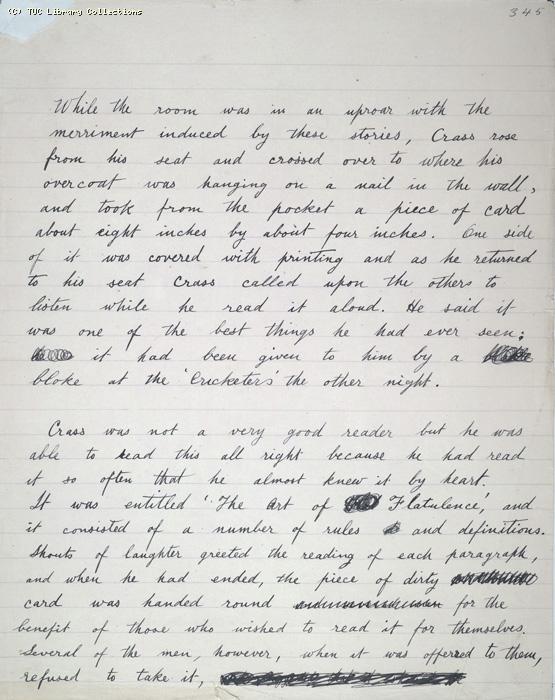 (C) TUC Library Collections
345
While the room was in an uproar with the
merriment induced by these stories, Crass rose
from his seat and crossed over to where his
overcoat was hanging on a nail in the wall,
and took from the pocket a piece of card
about eight inches by about four inches. One side
of it was covered with printing and as he returned
to his seat Crass called upon the others to
listen while he read it aloud. He said it
was one of the best things he had ever seen;
it had been given to him by a
bloke at the 'Cricketers' the other night.
Crass was not a very good reader but he was
able to read this all right because he had read
it so often that he almost knew it by heart.
It was entitled 'The Art of Flatulence', and
it consisted of a number of rules and definitions.
Shouts of laughter greeted the reading of each paragraph,
and when he had ended, the piece of dirty
card was handed round for the
benefit of those who wished to read it for themselves.
Several of the men, however, when it was offered to them,
refused to take it,